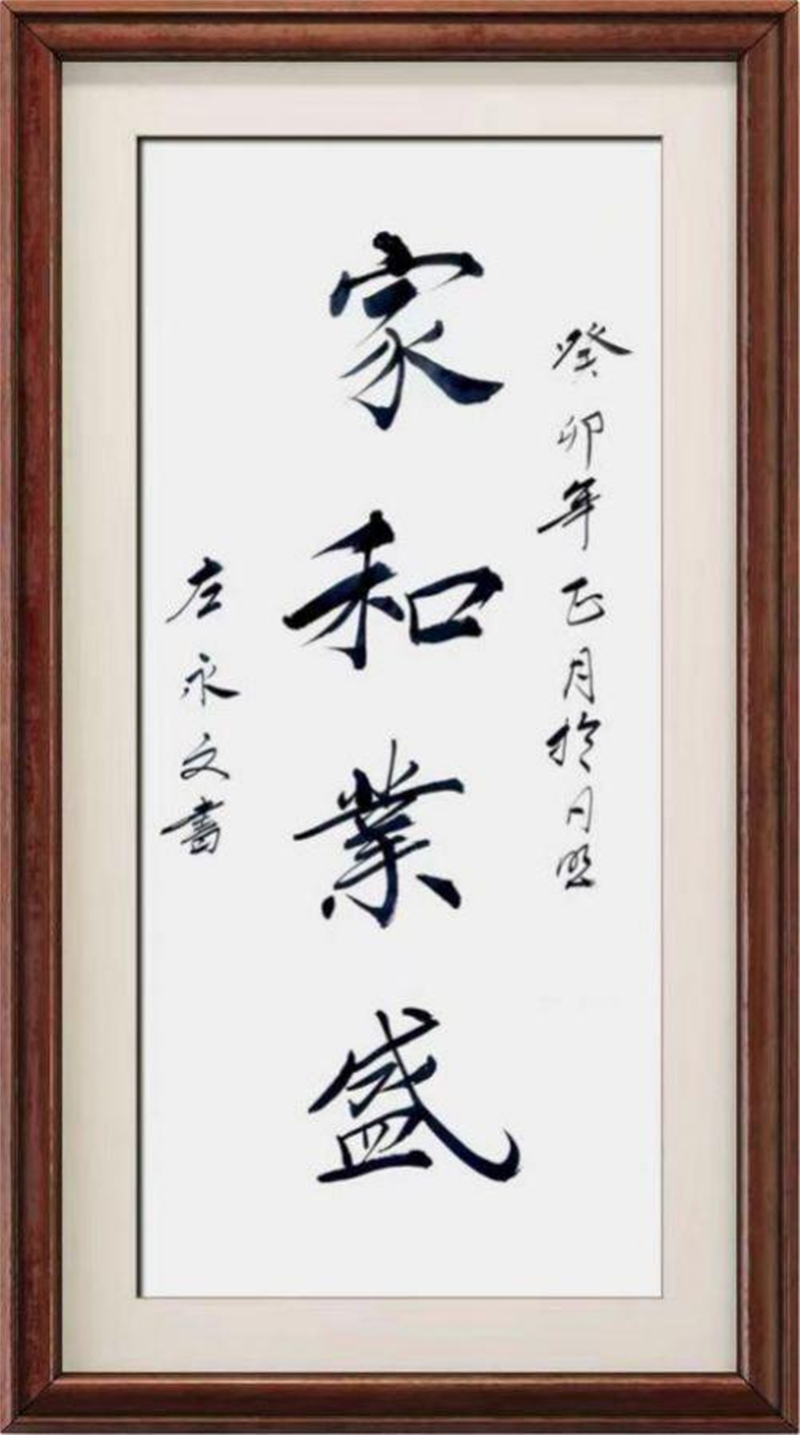 癸卯年正月於日照
家和業盛
左永文書